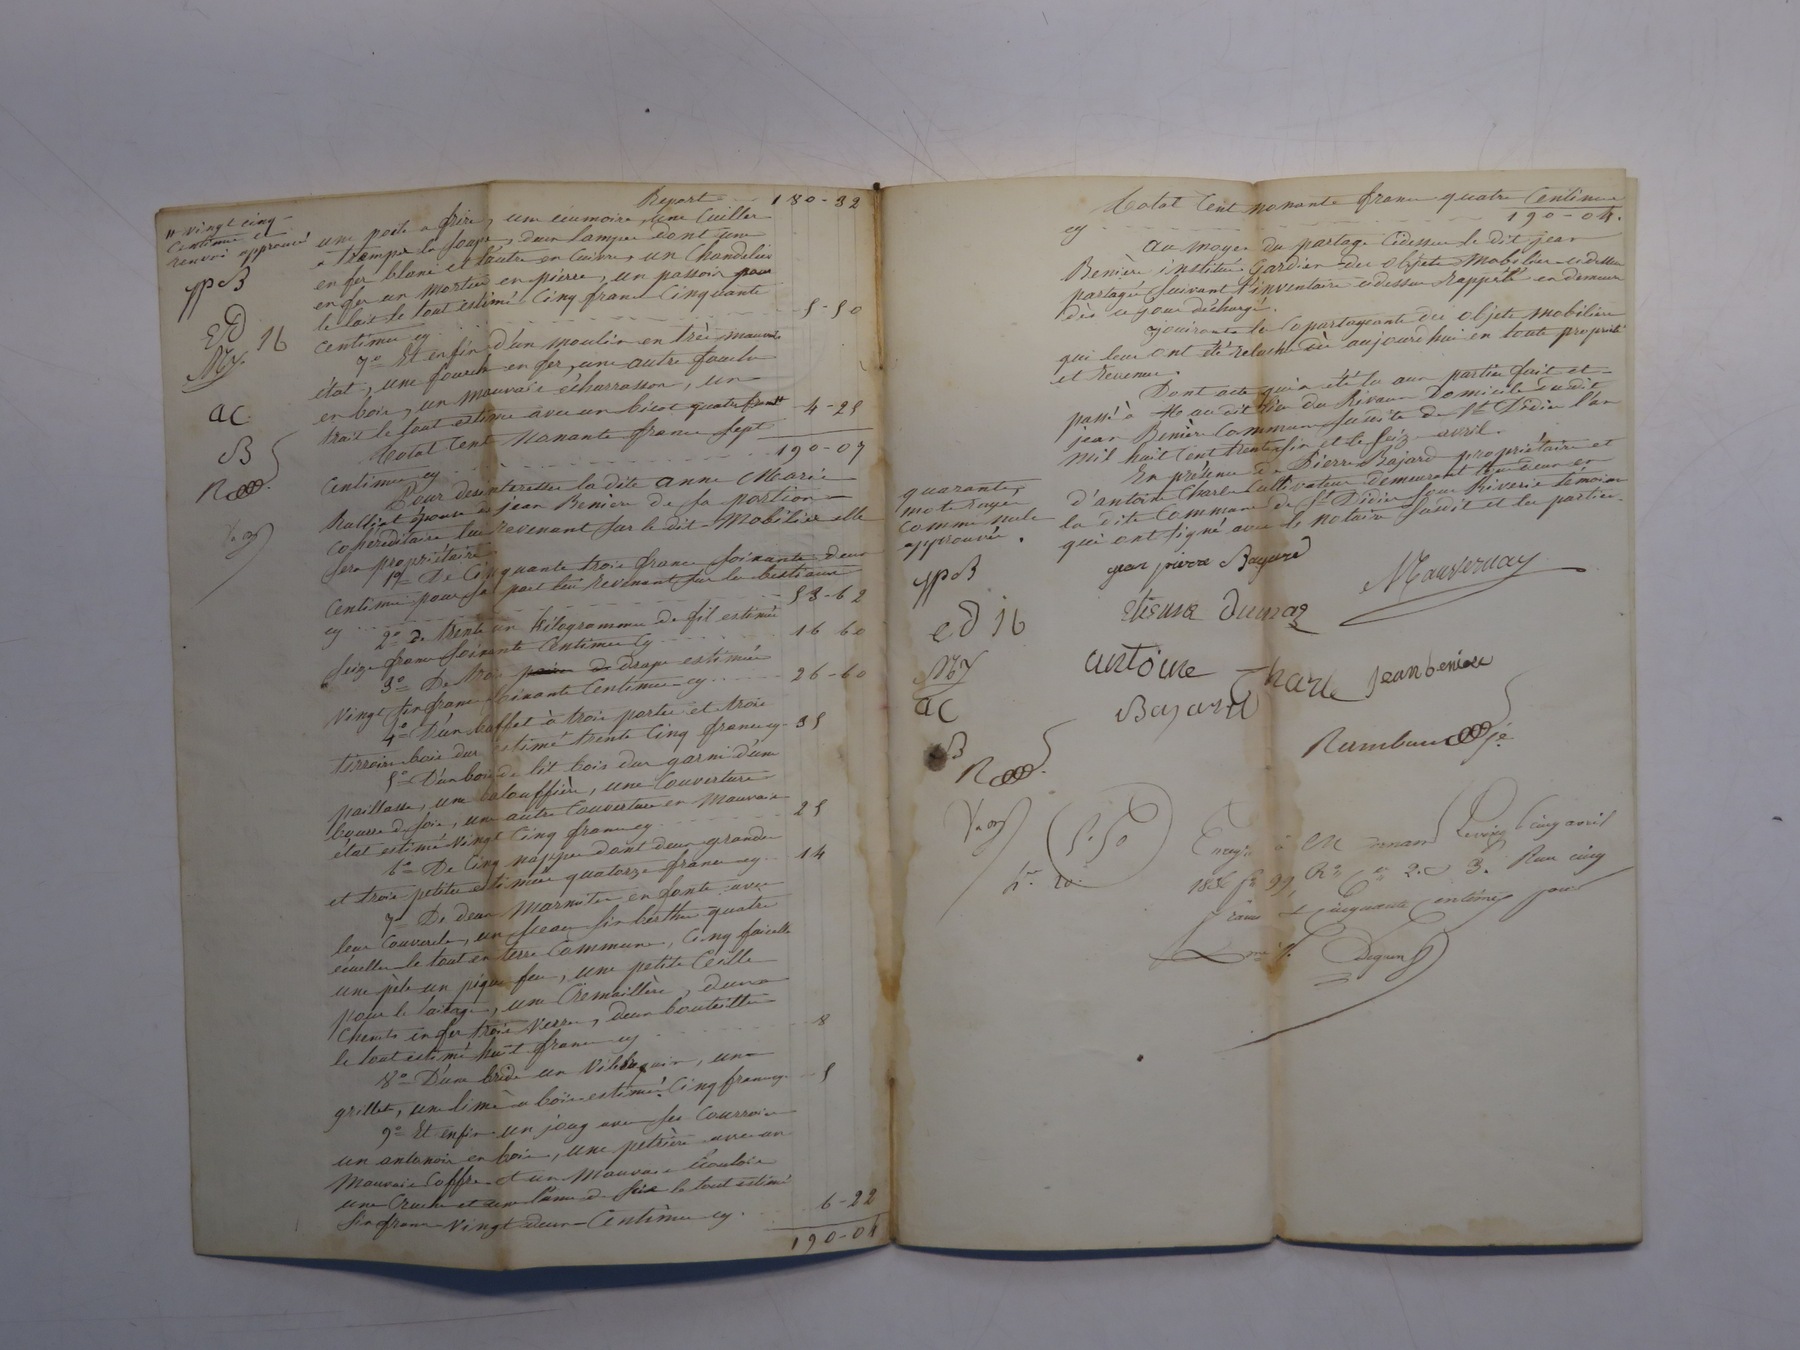 Report 180-32
" vingt cinq
Centimes et
renvoi approuvé
JPB
ED JB
My.
AC
B
R
une poele a frire, une ecumoire, une Cuiller
a tremper la soupe, deux lampes dont une
en fer blanc et l'autre en Cuivre, un Chandelier
en fer un mortier en pierre, un passoir pour
le lait le tout estimé Cinq francs Cinquante
Centimes cy 5-50
7º Et enfin d'un moulin en très mauvais
état, une fourche en fer, une autre fourche
en bois, un mauvais écharasson, un
trait le tout estimé avec un bicot quatre francs " 4-25
Total Cent Nonante francs sept
Centimes cy 190-07
Pour desinteresser la dite anne Marie
Ralliat épouse à jean Benière de sa portion
Cohéréditaire lui revenant sur le dit Mobilier elle
sera propriétaire
1º De Cinquante trois francs soixante deux
Centimes pour sa part lui revenant sur les bestiaux
cy 53-62
2º De trente un kilogrammes de fil estimés
seize francs soixante Centimes Cy 16 60
3º De trois paires de draps estimés
Vingt six francs soixante Centimes cy 26-60
4º D'un buffet à trois portes et trois
tirroirs bois dur estimé trente Cinq francs cy 35
5º D'un bois de lit bois dur garni d'une
paillasse, une balouffière, une Couverture
bourre de soie, une autre Couverture en Mauvais
état estimé Vingt Cinq francs cy 25
6º De Cinq nappes dont deux grandes
et trois petites estimées quatorze francs cy 14
7º De deux Marmites en fonte avec
leur Couvercle, un sceau six berthes quatre
écuelles le tout en terre Commune, Cinq faicelles
une pèle un pique feu, une petite Ceille
pour le laitage, une Crémaillère, deux
Chenets en fer trois Verres, deux bouteilles
le tout estimé huit francs cy 8
8º D'une bride un Vilbrequin, une
grillet, une lime a bois estimés Cinq francs cy 5
9º Et enfin un joug avec ses Courroies
un antonoir en bois, une petrière avec un
Mauvais Coffre et un Mauvais
une Cruche et une l'ame de scie le tout estimé
six francs Vingt deux Centimes cy 6-22
190-04
Total Cent nonante francs quatre Centimes
cy 190-04.
Au moyen du partage Cidessus le dit jean
Benière institué Gardien des objets Mobiliers cidessus
partagés suivant l'inventaire cidessus rappelé en demeure
dès ce jour déchargé.
Jouiront les Copartageants des objets mobiliers
qui leur ont été relachés dès aujourd'hui en toute propriété
et revenus.
Dont acte qui a été lu aux parties fait et
passé à au dit lieu du Rivaux Domicile du dit
jean Benière Commune susdite de St Didier l'an
mil huit Cent trente six et le seize avril.
En présence de Pierre Bajard propriétaire et
d'antoine Charle Cultivateur demeurant tous deux en
la dite Commune de St Didier sous Riverie témoins
qui ont signé avec le notaire susdit et les parties.
quarante,
mots rayés
Comme nuls
approuvés.
JPB
ED JB
My
AC
B
R
jean pierre Bajard
Mauvernay
etienne Dumas
antoine Charle jean beniere
Bajard
Rambaud
Enregistré à Mornant le vingt cinq avril
1836 fº 99, Rº Ces 2 et 3. Reçu cinq
francs et cinquante centimes pour